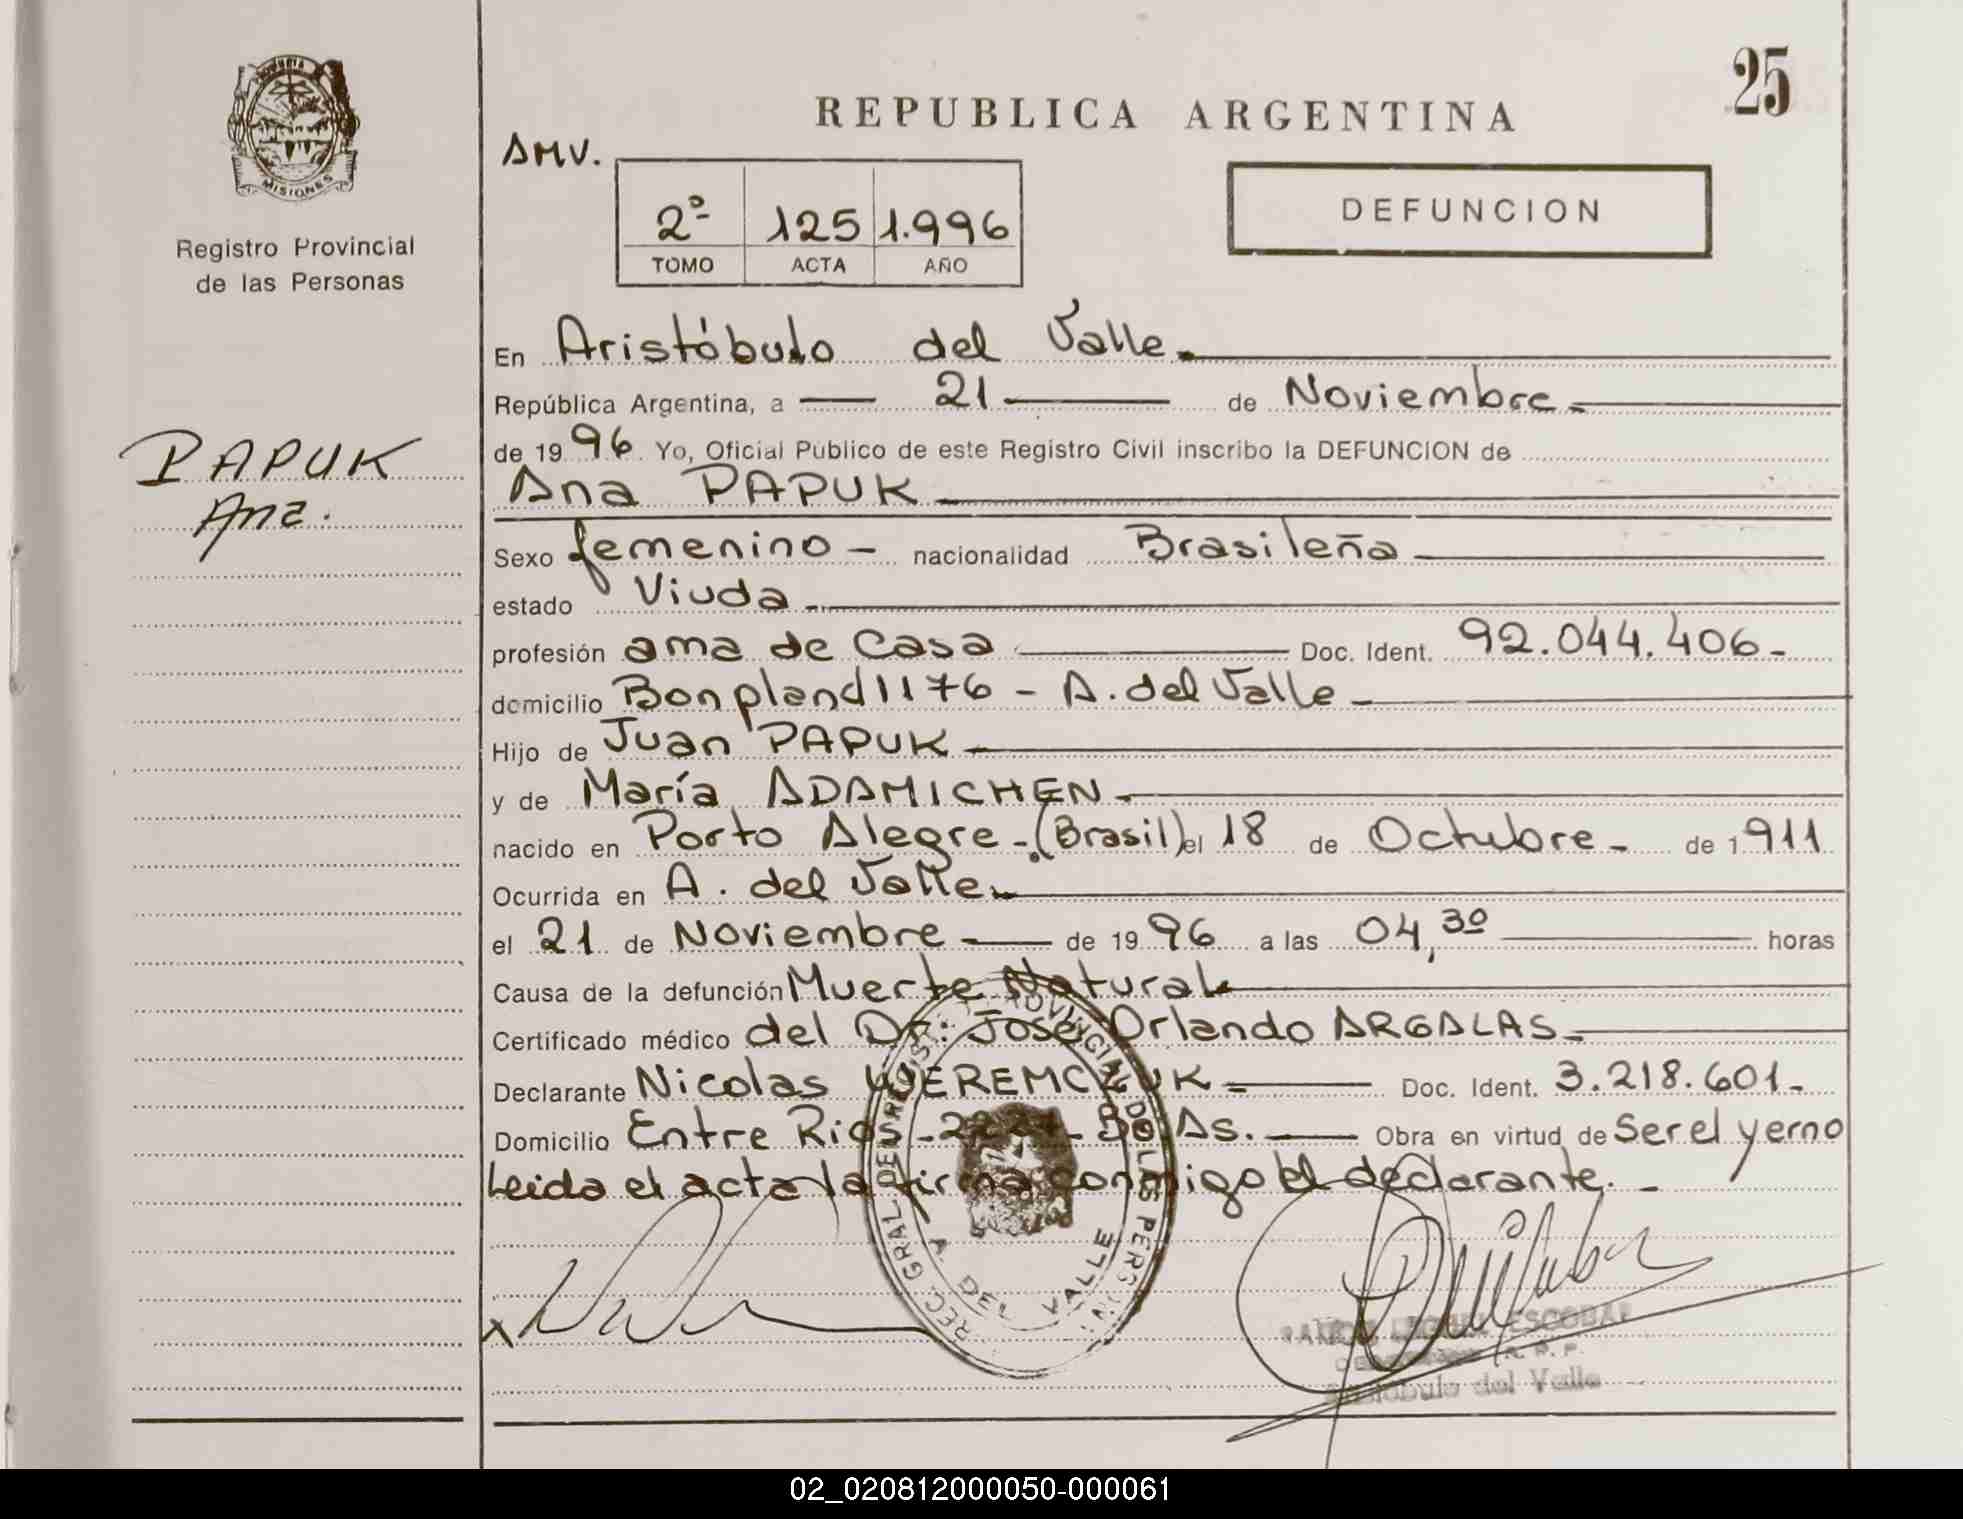 25
REPUBLICA ARGENTINA
PROVINCIA
MISIONES
Registro Provincial
de las Personas
AMV.
2º 125 1.996
TOMO ACTA AÑO
DEFUNCION
PAPUK
Ana.
En Aristóbulo del Valle.
República Argentina, a 21 de Noviembre.
de 1996 Yo, Oficial Público de este Registro Civil inscribo la DEFUNCION de
Ana PAPUK
Sexo femenino - nacionalidad Brasileña
estado Viuda.
profesión ama de Casa Doc. Ident. 92.044.406-
domicilio Bonpland 1176 - A. del Valle
Hijo de Juan PAPUK
y de María ADAMICHEN
nacido en Porto Alegre - (Brasil) el 18 de Octubre - de 1911
Ocurrida en A. del Valle
el 21 de Noviembre de 1996 a las 04,30 horas
Causa de la defunción Muerte Natural
Certificado médico del Dr. José Orlando ARGALAS
Declarante Nicolas WEREMCZUK Doc. Ident. 3.218.601-
Domicilio Entre Rios - Bs As. Obra en virtud de Ser el yerno
Leida el acta la firma conmigo el declarante. -
REC. GRAL. DEL REGISTRO PROVINCIAL DE LAS PERSONAS
A. DEL VALLE
ESCOBAR
del Valle
02_020812000050-000061